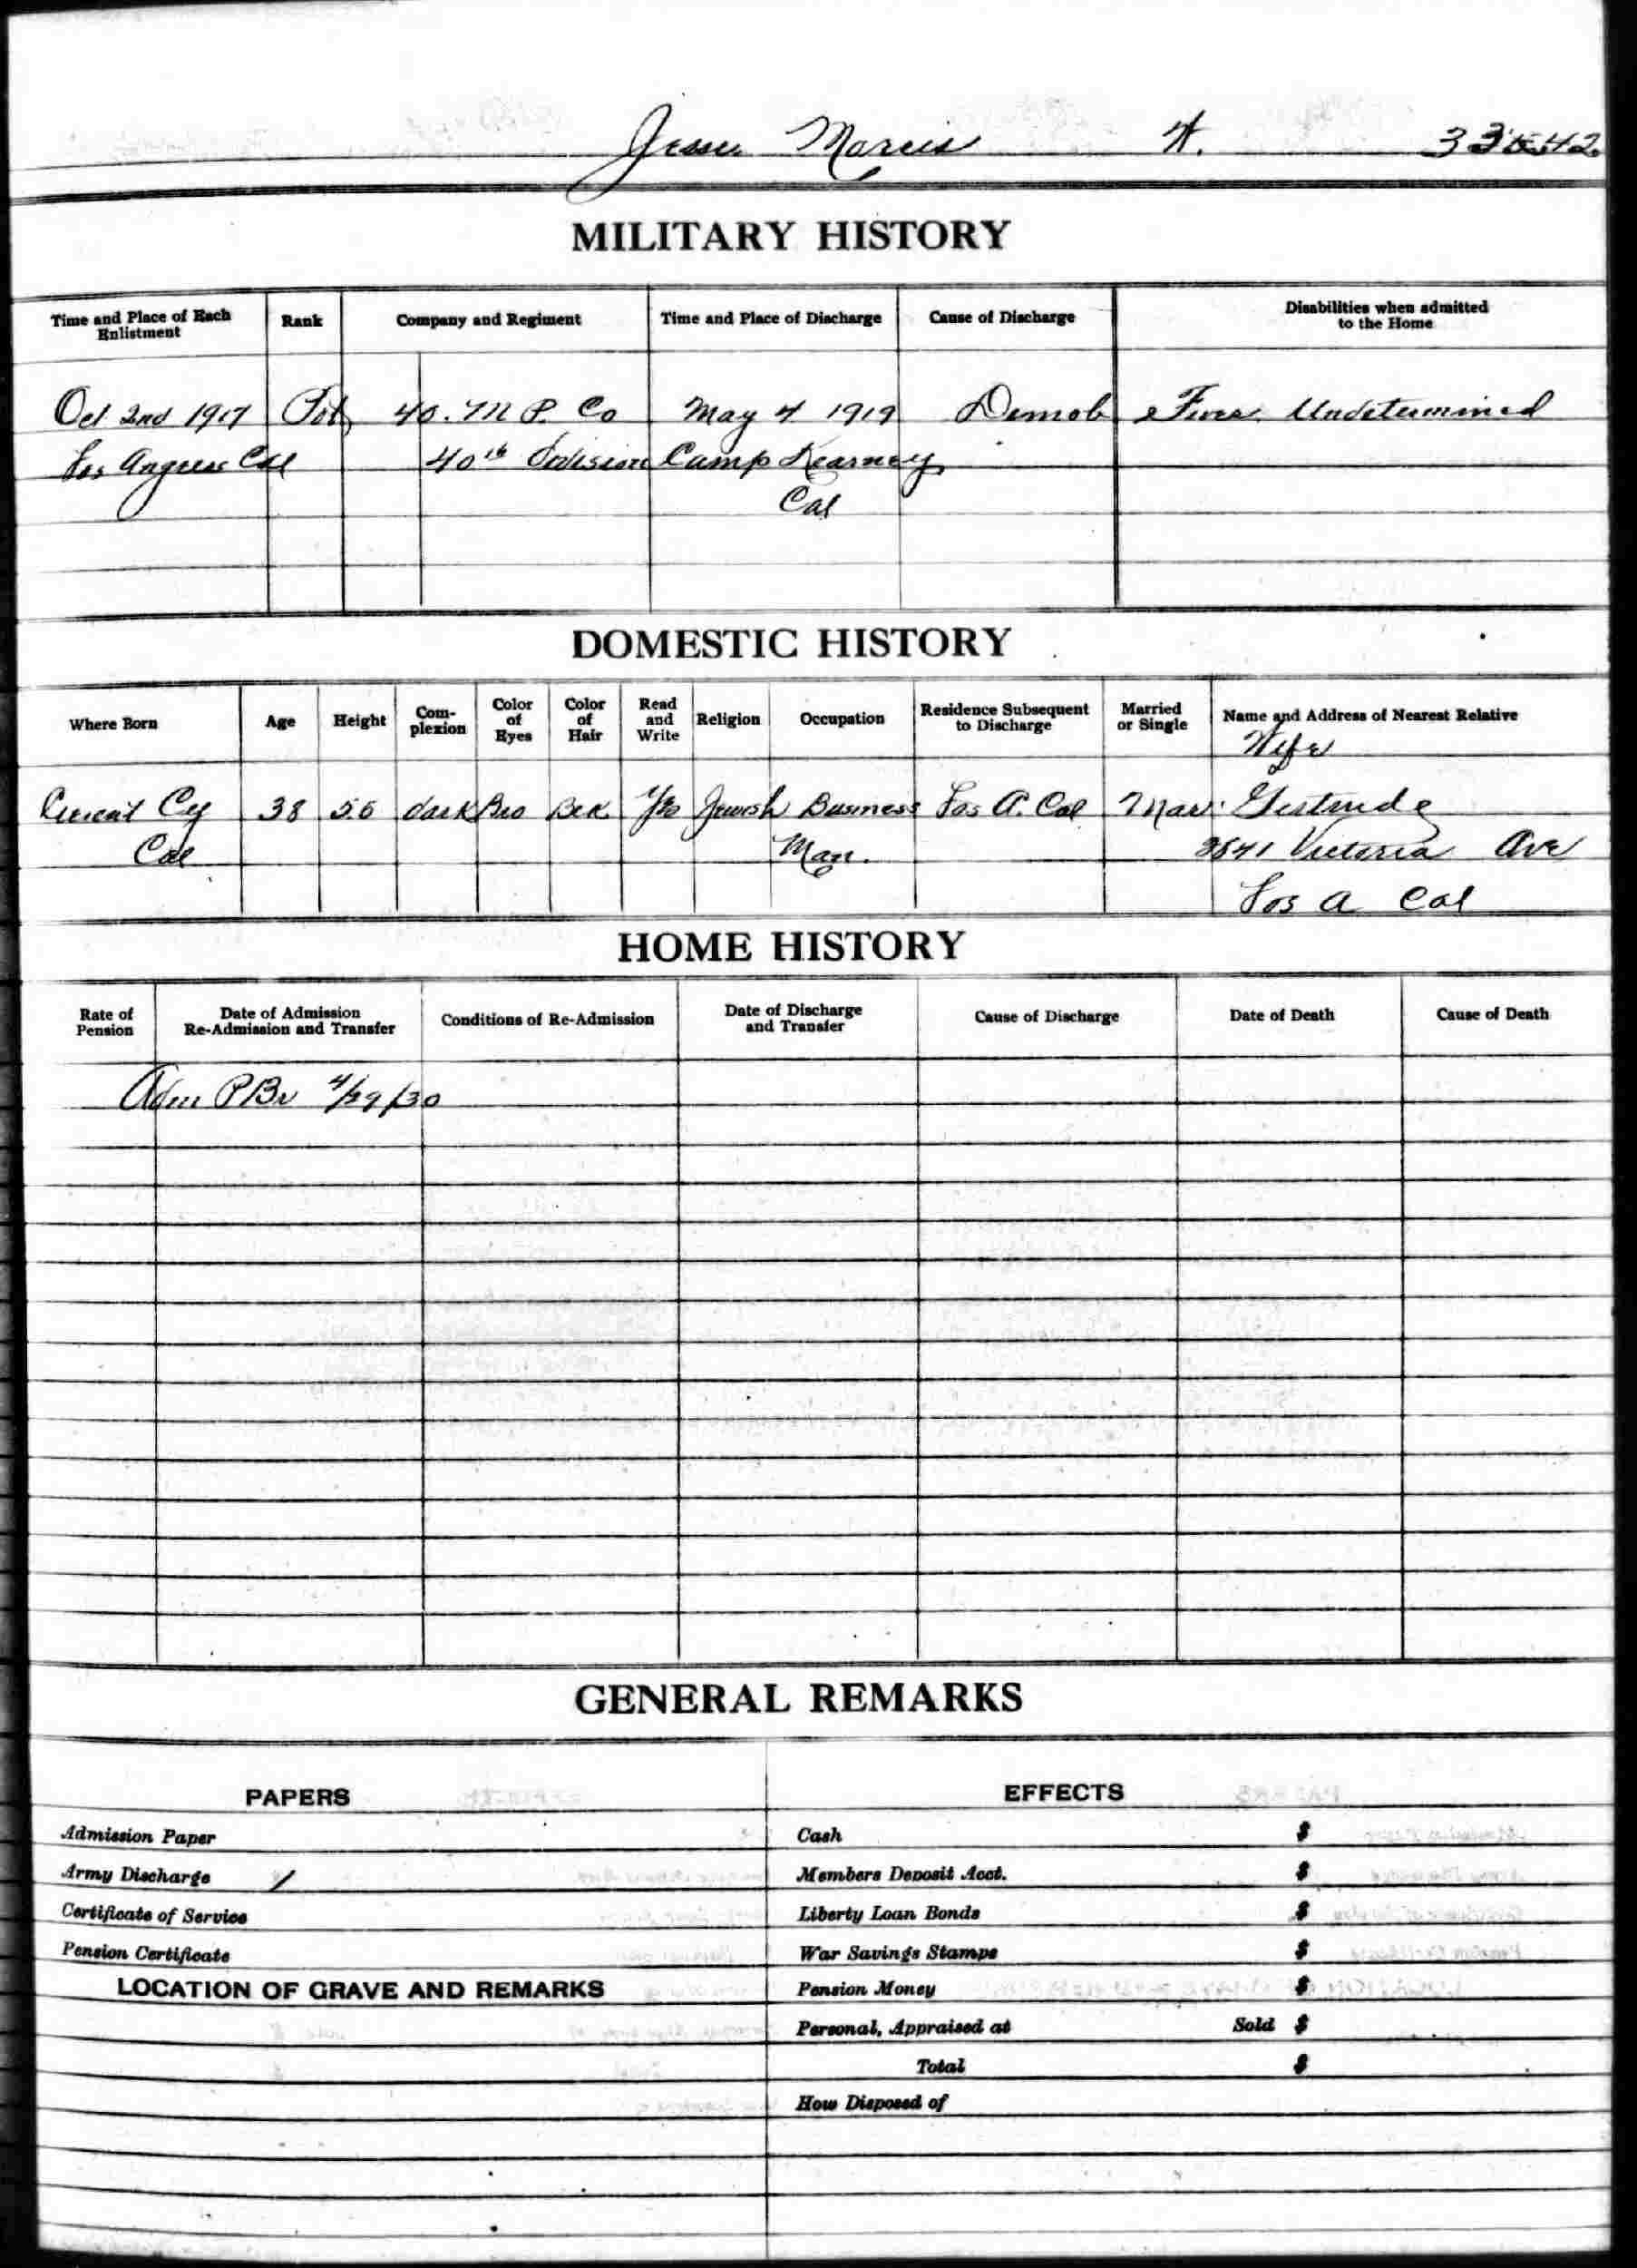 Jesse Morris A.
MILITARY HISTORY
Time and Place of Each Enlistment Rank Company and Regiment Time and Place of Discharge Cause of Discharge Disabilities when admitted to the Home
Oct 2nd 1917 Pvt 40. M P. Co May 4 1919 Demob Undetermined
Los Angeles Cal 40th Division Camp Kearney
Cal
DOMESTIC HISTORY
Where Born Age Height Com-plexion Color of Eyes Color of Hair Read and Write Religion Occupation Residence Subsequent to Discharge Married or Single Name and Address of Nearest Relative
Wife
38 5.6 dark Bro Blk Yes Jewish Business Los A. Cal Mar. Gertrude
Cal Man. 3641 Victoria Ave
Los A Cal
HOME HISTORY
Rate of Pension Date of Admission Re-Admission and Transfer Conditions of Re-Admission Date of Discharge and Transfer Cause of Discharge Date of Death Cause of Death
Adm P Br 4/29/30
GENERAL REMARKS
PAPERS EFFECTS
Admission Paper Cash $
Army Discharge / Members Deposit Acct. $
Certificate of Service Liberty Loan Bonds $
Pension Certificate War Savings Stamps $
LOCATION OF GRAVE AND REMARKS Pension Money $
Personal, Appraised at Sold $
Total $
How Disposed of